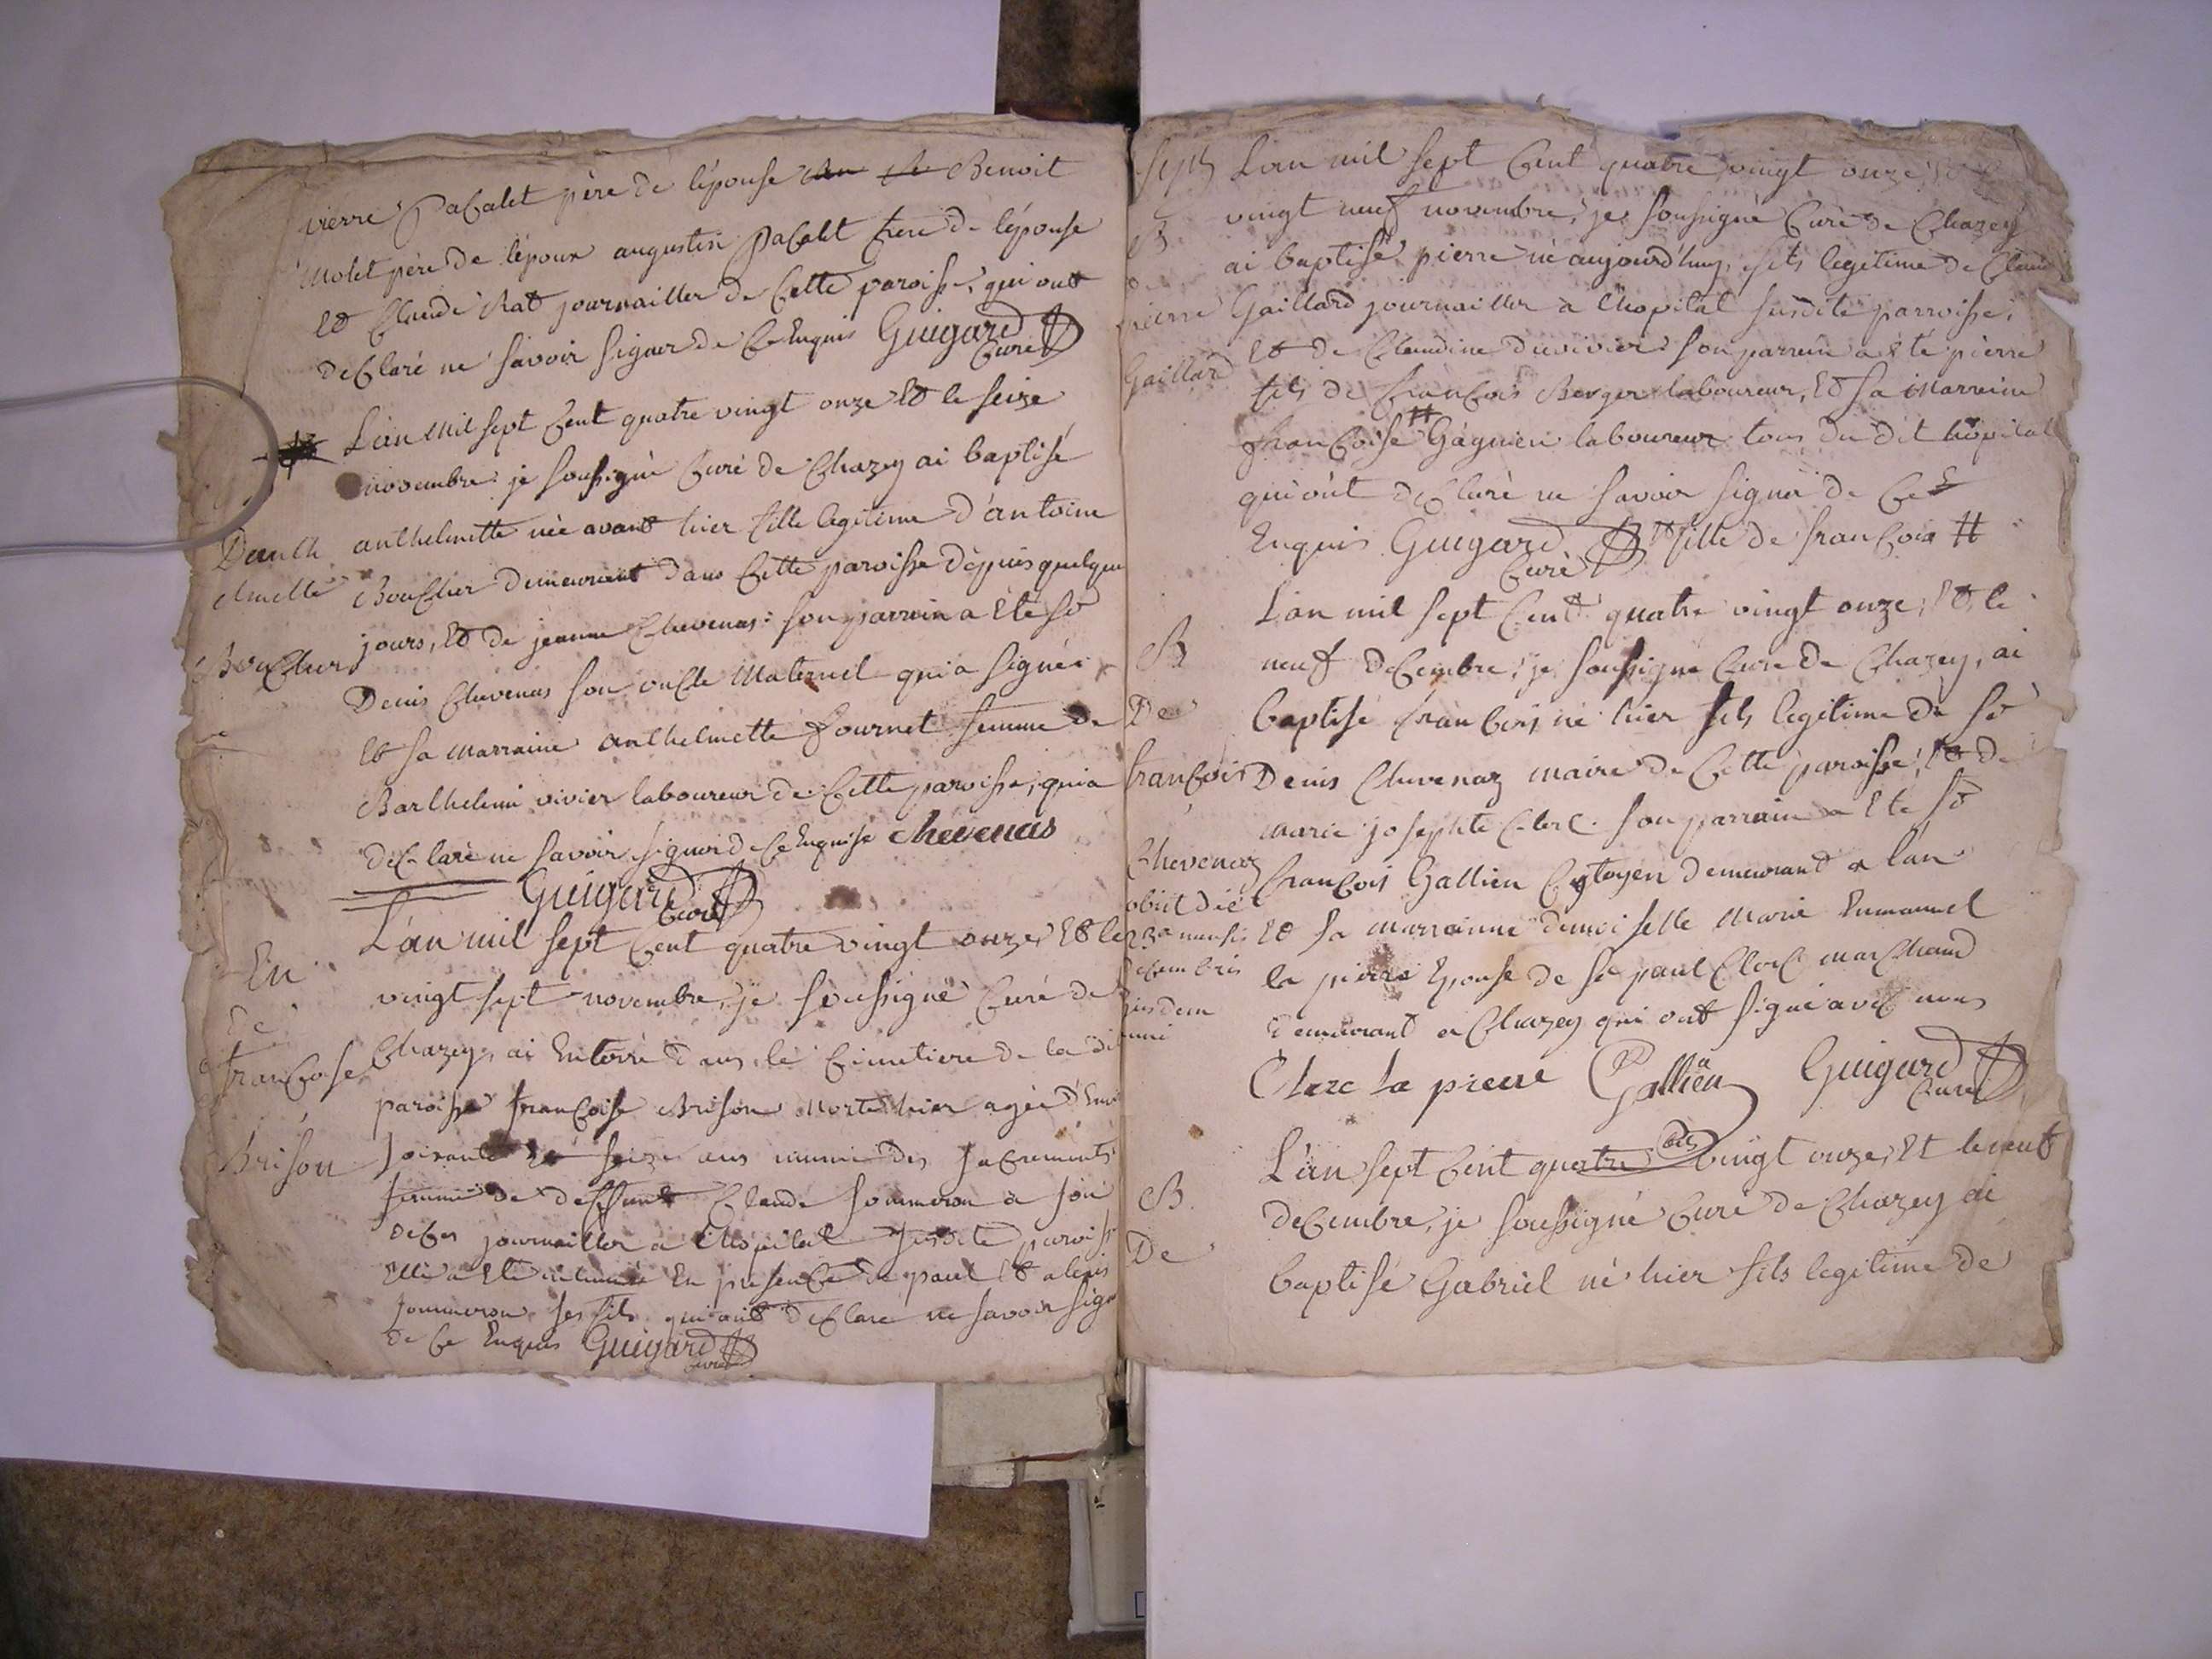 pierre pacalet père de l'épouse Benoit
Molet père de l'époux augustin pacalet frere de l'épouse
Et Claude Rat journailler de Cette paroisse, qui ont
declaré ne savoir signer de Ce Enquis Guigard
Curé
L'an Mil sept Cent quatre vingt onze Et le seize
novembre je soussigné Curé de Chazey ai baptisé
D'anth anthelmette née avant hier fille legitime d'antoine
elmette Boucher demeurant dans Cette paroisse depuis quelque
Boucher jours, Et de jeanne Chevenas: son parrain a Eté sr
Denis Chevenas son oncle Maternel qui a signé;
Et sa Marraine anthelmette fournet femme de
Barthelemi vivier laboureur de Cette paroisse, qui a
declaré ne savoir signer de Ce Enquise Chevenas
Guigard
Curé
L'an mil sept Cent quatre vingt onze, Et le
En vingt sept novembre, je soussigné Curé de
de
francoise Chazey, ai Enterré dans le Cimetiere de la dit
paroisse françoise Brison Morte hier agée d'Envi
Brison soixante seize ans munie des sacrements
femme de deffunt Claude sommeron a son
deces journailler a l'hopital susdite paroisse
Elle a Eté inhumée En presence de paul Et alexis
sommeron ses fils qui ont declaré ne savoir sign
de Ce Enquis Guigard
Curé
sept L'an mil sept Cent quatre vingt onze,
vingt neuf novembre, je soussigné Curé de Chazey
B ai baptisé pierre né aujourd'huy, fils legitime de Claude
de
pierre Gaillard journailler a l'hopital susdite parroisse,
Gaillard Et de Claudine duvivier son parrein a été pierre
fils de françois Berger laboureur, Et sa Marreine
françoise # Gagnieu laboureur tous du dit hôpital
qui ont declaré ne savoir signer de Ce
Enquis Guigard # fille de françois #
Curé
L'an mil sept Cent quatre vingt onze, Et le
B neuf decembre, je soussigné Curé de Chazey, ai
De baptisé françois né hier fils legitime de sr
françois Denis Chevenaz maire de Cette paroisse, Et de
marie josephte Clerc. son parrain a Eté sr
Chevenaz françois Gallien Cytoyen demeurant a l'an
obiit die
23a mensis Et sa marrainne demoiselle Marie Emmanuel
decembris la pierre Epouse de sr paul Clerc marchand
eiusdem demeurant a Chazey qui ont signé avec nous
anni
Clerc la pierre Gallien Guigard
Curé
L'an sept Cent quatre vingt onze, Et le neuf
B. decembre, je soussigné Curé de Chazey ai
De baptisé Gabriel né hier fils legitime de